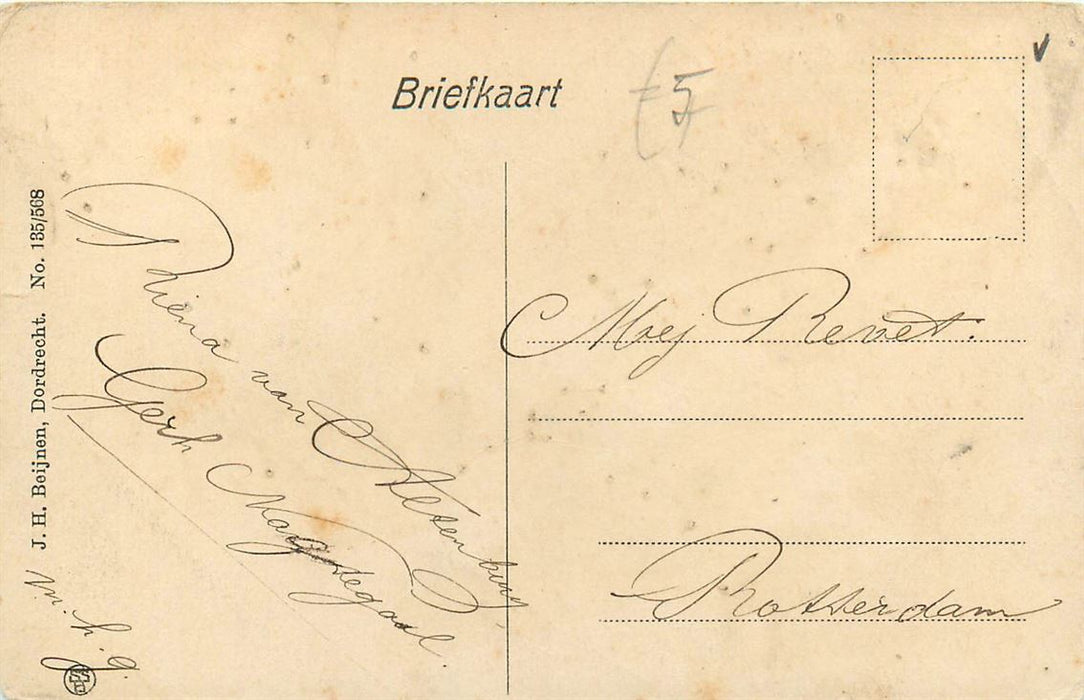 Briefkaart
€5
J. H. Beijnen, Dordrecht. No. 135/568
Riena van Altenburg
Gerh Nachtegaal.
m. h. g.
Mej Revet.
Rotterdam